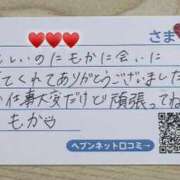 さま
しいのにもかに会いに
てくれてありがとうございました
お仕事大変だけど頑張ってね
もか
ヘブンネット口コミ→